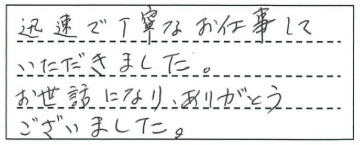 迅速で丁寧なお仕事して
いただきました。
お世話になり、ありがとう
ございました。